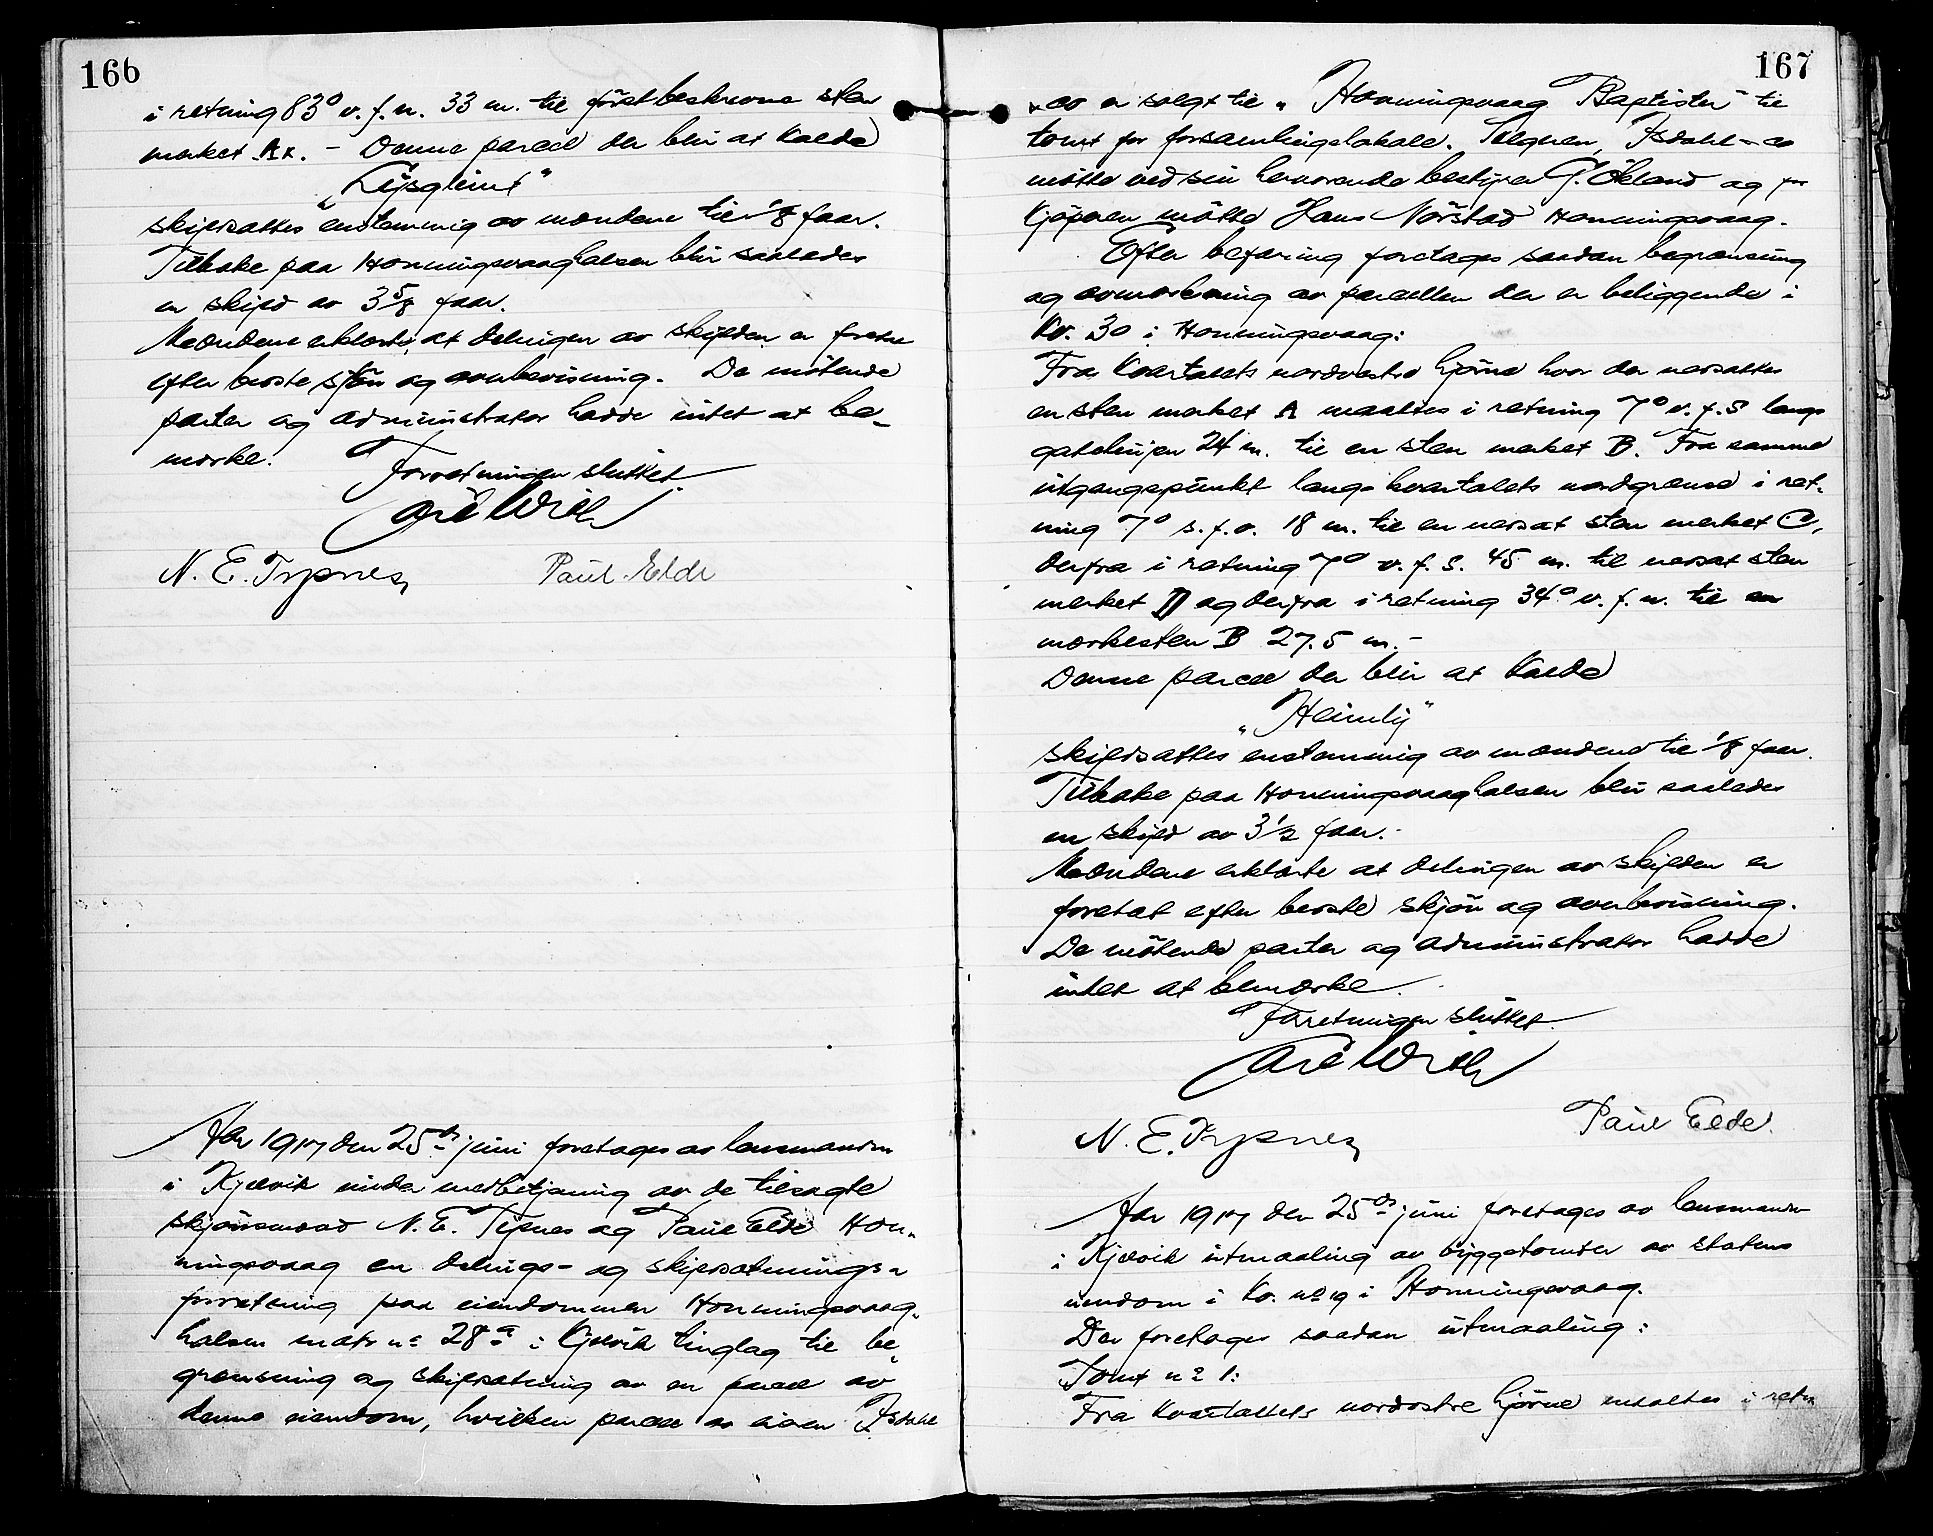 166
i retning 83° v. f. n. 33 m. til förstbeskrevne sten
merket Ax. – Denne parcel der blir at kalde
"Lysglimt"
skyldsattes enstemmig av mændene til 1/8 faar.
Tilbake paa Honningsvaaghalsen blir saaledes
en skyld av 3 5/8 faar.
Mændene erklærte, at delingen av skylden er foreta
efter beste skjön og overbevisning. De mötende
parter og administrator hadde intet at be-
merke.
Forretningen sluttet.
N. E. Typnes
Paul Elde
Aar 1917 den 25de juni foretages av lensmannen
i Kjelvik under medbetjening av de tilsagte
skjönsmænd N. E. Tipnes og Paul Elde Hon-
ningsvaag en delings- og skyldsætnings-
forretning paa eiendommen Honningsvaag-
halsen matr nr 28a i Kjelvik tinglag til be-
grænsning og skyldsætning av en parcel av
denne eiendom, hvilken parcel av eieren Isdahl
167
& co er solgt til "Honningsvaag Baptister" til
tomt for forsamlingslokale. Selgeren, Isdahl & co
mötte ved sin herværende bestyrer G. Ökland og for
Kjöperen mötte Hans Nörstad Honningsvaag.
Efter befaring foretages saadan begrænsning
og avmerkning av parcellen der er beliggende i
Kv. 30 i Honningsvaag:
Fra Kvartalets nordvestre hjörne hvor der nersattes
en sten merket A maaltes i retning 7° v. f. S langs
gatelinjen 24 m. til en sten merket B. Fra samme
utgangspunkt langs kvartalets nordgrense i ret-
ning 7° s. f. o. 18 m. til en nersat sten merket C,
derfra i retning 7° v. f. S. 45 m. til nersat sten
merket D og derfra i retning 34° v. f. n. til en
merkesten B 27.5 m.-
Denne parcel der blir at kalde
"Heimly"
skyldsattes enstemmig av mændene til 1/8 faar.
Tilbake paa Honningsvaaghalsen blir saaledes
en skyld av 3 1/2 faar.-
Mændene erklærte at delingen av skylden er
foretat efter beste skjön og overbevisning.
De mötende parter og administrator hadde
intet at bemerke.
Forretningen sluttet.
N. E. Typnes
Paul Elde.
Aar 1917 den 25de juni foretages av lensmanden
i Kjelvik utmaaling av byggetomter av statens
eiendom i Kv. no 19 i Honningsvaag.
Der foretages saadan utmaaling:
Tomt no 1:
Fra Kvartalets nordöstre hjörne maaltes i retn